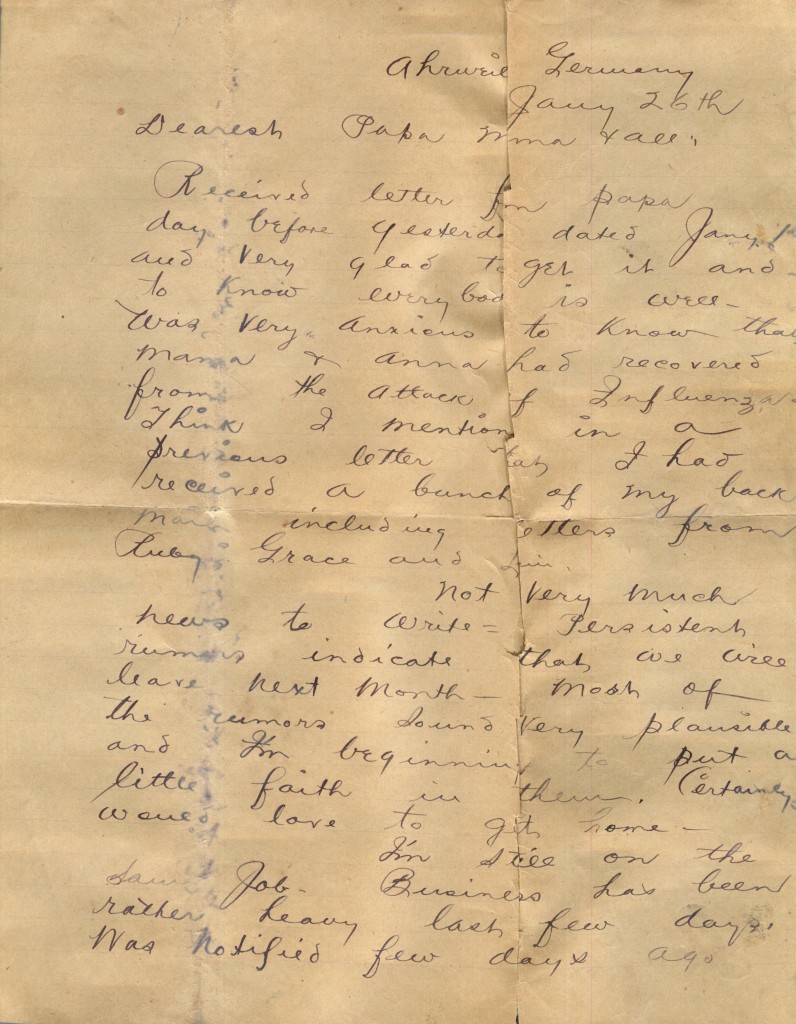 Ahrweil Germany
Jany 26th
Dearest Papa Mma & all,
Received letter fm papa
day before yesterda dated Jany
and very glad to get it and
to know everybod is well -
Was very anxious to know that
mama & anna had recovered
from the attack of Influenza -
Think I mention in a
previous letter that I had
received a bunch of my back
mail including etters from
Ruby Grace and
Not very much
news to write = Persistent
rumors indicate that we will
leave next month - most of
the rumors sound very plausible
and I'm beginning to put a
little faith in them. Certainly
would love to get home -
I'm still on the
same Job - Business has been
rather heavy last few days.
Was notified few days ago